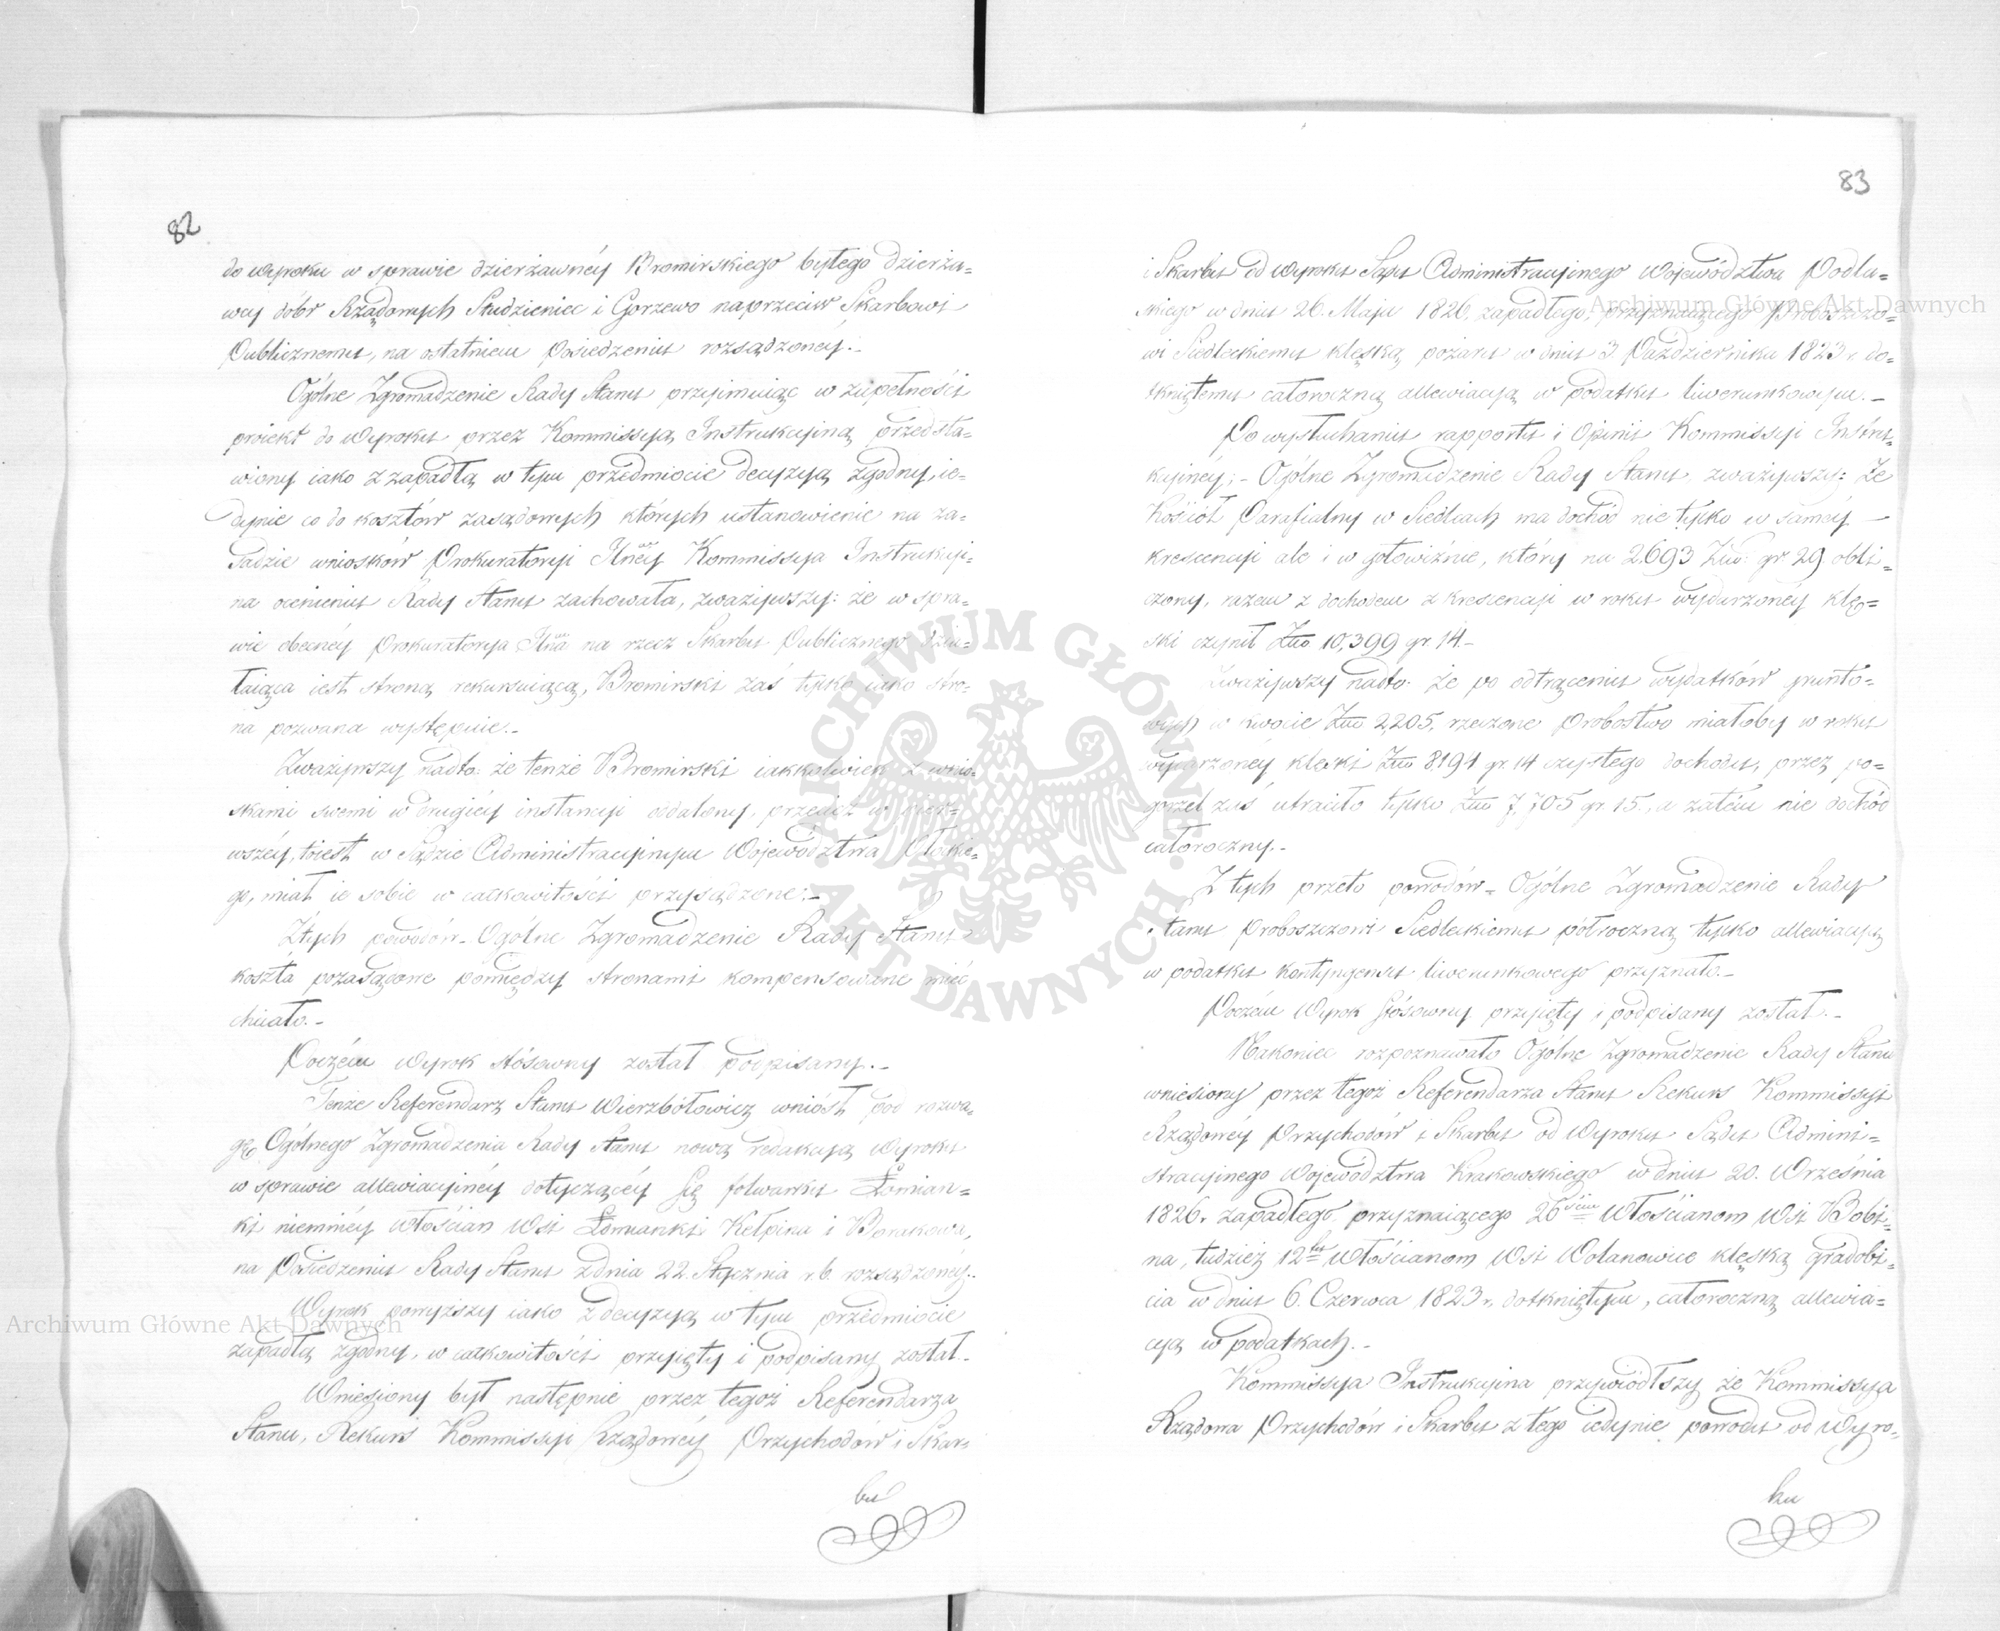 82
do wyroku w sprawie dzierżawnéy Bromirskiego byłego dzierża-
wcy dóbr Rządowych Studzieniec i Gorzewo naprzeciw Skarbowi
Publicznemu, na ostatniem Posiedzeniu rozsądzonéy.-
Ogólne Zgromadzenie Rady Stanu przyimuiąc w zupełności
proiekt do Wyroku przez Kommissyą Instrukcyiną przedsta-
wiony iako z zapadłą w tym przedmiocie decyzyą zgodny, ie-
dynie co do kosztów zasądowych których ustanowienie na za-
sadzie wniosków Prokuratoryi Jlnéy Kommissya Instrukcyi-
na ocenieniu Rady Stanu zachowała, zważywszy: że w spra-
wie obecnéy Prokuratorya Jlna na rzecz Skarbu Publicznego dzia-
łaiąca iest stroną rekursuiącą, Bromirski zaś tylko iako stro-
na pozwana występuie.-
Zważywszy nadto: że tenże Bromirski iakkolwiek z wnio-
skami swemi w drugiéy instancyi oddalony, przecież w pier-
wszéy, toiest w Sądzie Administracyinym Województwa Płockie-
go, miał ie sobie w całkowitości przysądzone;-
Z tych powodów- Ogólne Zgromadzenie Rady Stanu
koszta pozasądowe pomiędzy stronami kompensowane mieć
chciało.-
Poczém Wyrok stósowny został podpisany.-
Tenże Referendarz Stanu Wierzbołowicz wniósł pod rozwa-
gę Ogólnego Zgromadzenia Rady Stanu nową redakcyą Wyroku
w sprawie allewiacyinéy dotyczącéy się folwarku Łomian-
ki niemniéy Włościan Wsi Łomianki Kełpina i Burakowa,
na Posiedzeniu Rady Stanu z dnia 22. Stycznia r.b. rozsądzonéy.-
Wyrok powyższy iako z decyzyą w tym przedmiocie
zapadłą zgodny, w całkowitości przyięty i podpisany został.-
Wniesiony był następnie przez tegoż Referendarza
Stanu, Rekurs Kommissyi Rządowéy Przychodów i Skar-
bu
83
i Skarbu od Wyroku Sądu Administracyinego Województwa Podla-
skiego w dniu 26. Maja 1826. zapadłego, przyznaiącego Proboszczo-
wi Siedleckiemu klęską pożaru w dniu 3. Października 1823 r. do-
tkniętemu całoroczną allewiacyą w podatku liwerunkowym.-
Po wysłuchaniu rapportu i Opinii Kommissyi Instru-
kcyinéy;- Ogólne Zgromadzenie Rady Stanu, zważywszy: że
Kościół Parafialny w Siedlcach ma dochód nie tylko w saméy
krescencyi ale i w gotowiźnie, który na 2.693 Złp. gr. 29. obli-
czony, razem z dochodem z krescencyi w roku wydarzonéy klę-
ski czynił Złp. 10,399 gr. 14.-
Zważywszy nadto: że po odtrąceniu wydatków grunto-
wych w kwocie Złp 2,205, rzeczone Probostwo miałoby w roku
wydarzonéy klęski Złp 8194 gr. 14 czystego dochodu, przez po-
gorzel zaś utraciło tylko Złp 7,705 gr. 15., a zatém nie dochód
całoroczny.-
Z tych przeto powodów- Ogólne Zgromadzenie Rady
Stanu Proboszczowi Siedleckiemu półroczną tylko allewiacyą
w podatku kontyngensu liwerunkowego przyznało.-
Poczém Wyrok stósowny przyięty i podpisany został.-
Nakoniec rozpoznawało Ogólne Zgromadzenie Rady Stanu
wniesiony przez tegoż Referendarza Stanu Rekurs Kommissyi
Rządowéy Przychodów i Skarbu od Wyroku Sądu Admini-
stracyinego Województwa Krakowskiego w dniu 20. Września
1826. zapadłego, przyznaiącego 26ciu Włościanom Wsi Bobi-
na, tudzież 12tu Włościanom Wsi Wolanowice klęską gradobi-
cia w dniu 6. Czerwca 1823 r. dotkniętym, całoroczną allewia-
cyą w podatkach.-
Kommissya Instrukcyina przywiódłszy że Kommissya
Rządowa Przychodów i Skarbu z tego iedynie powodu od Wyro-
ku
Archiwum Główne Akt Dawnych
Archiwum Główne Akt Dawnych
ARCHIWUM GŁÓWNE AKT DAWNYCH